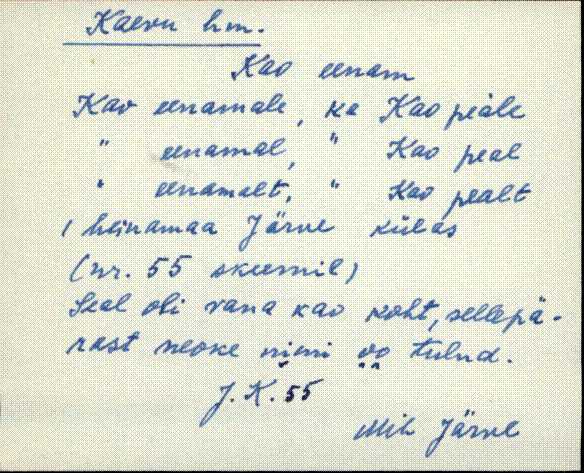 Kaevu hm.
Kao eenam
Kao eenamale, ka Kao peale
" eenamal, " Kao peal
" eenamalt, " Kao pealt
1 heinamaa Järve külas
(nr. 55 skeemil)
Seal oli vana kao koht, sellepä-
rast neoke nimi oo tulnd.
J. K. 55
Mih Järve